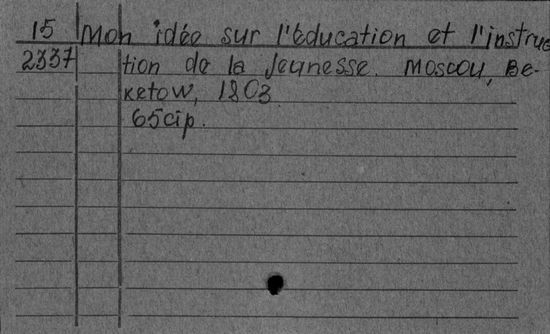 15 Mon idée sur l'éducation et l'instruc
2337 tion de la jeunesse. Moscou, Be-
ketow, 1803
65 стр.